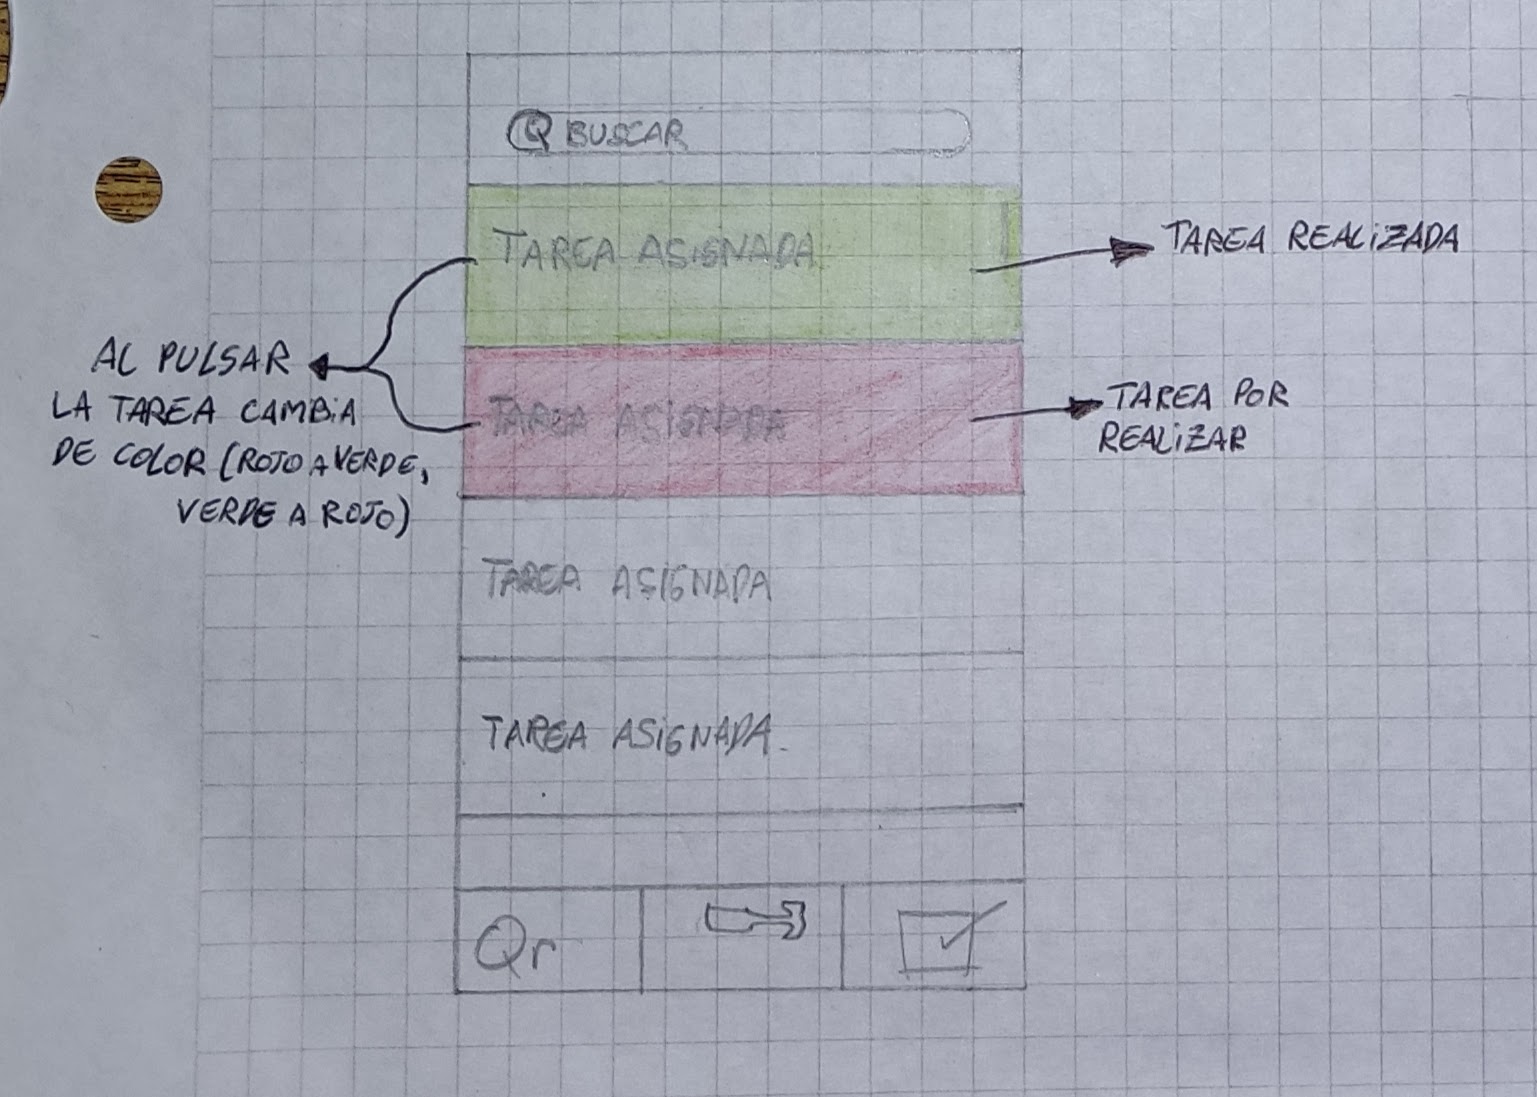 BUSCAR
TAREA ASIGNADA
TAREA REALIZADA
AL PULSAR
LA TAREA CAMBIA
DE COLOR (ROJO A VERDE,
VERDE A ROJO)
TAREA ASIGNADA
TAREA POR
REALIZAR
TAREA ASIGNADA
TAREA ASIGNADA.
Qr